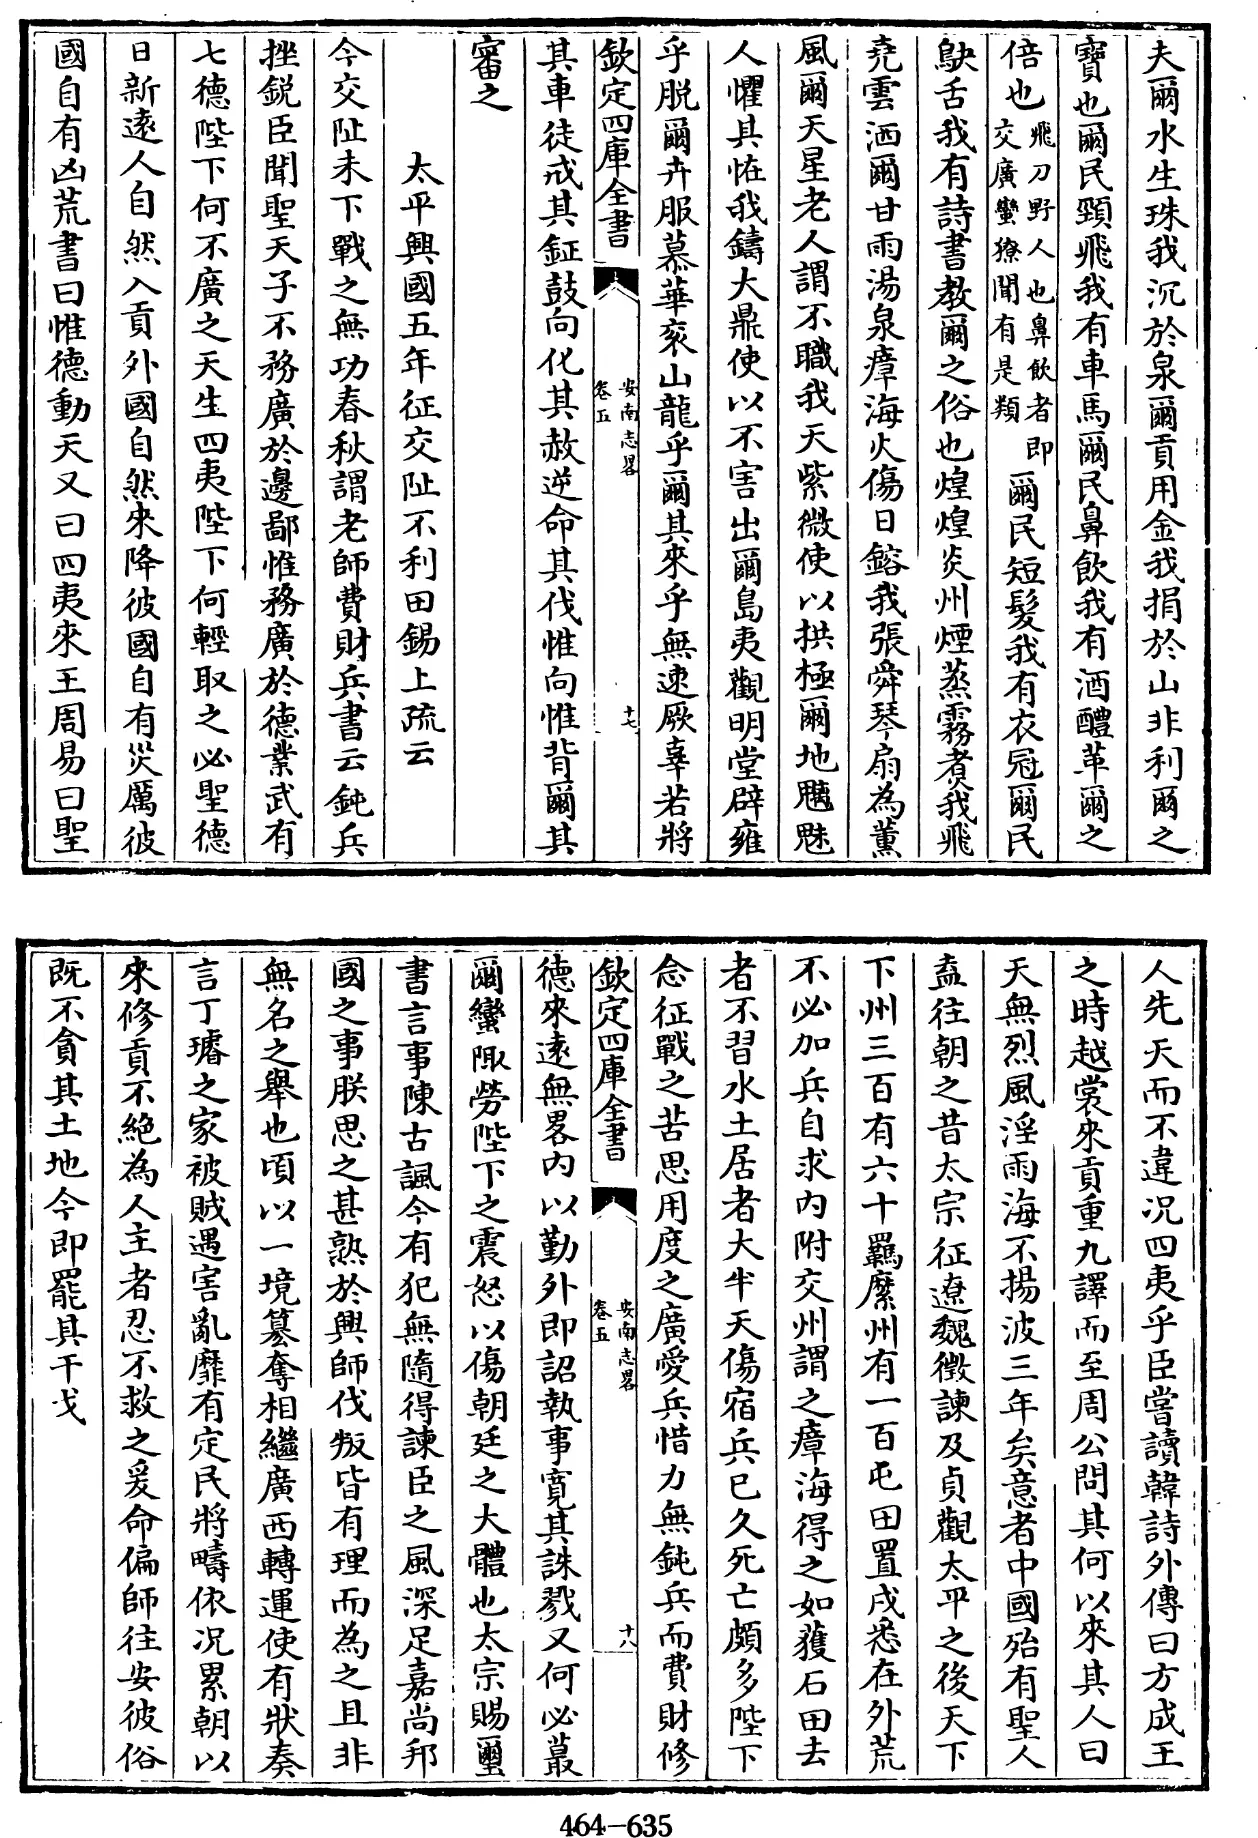 夫爾水生珠我沉於泉爾貢用金我捐於山非利爾之
寶也爾民頸飛我有車馬爾民鼻飲我有酒醴革爾之
俗也飛刀野人也鼻飲者即交廣蠻獠聞有是類爾民短髮我有衣冠爾民
鴃舌我有詩書教爾之俗也煌煌炎州煙蒸霧煮我飛
堯雲洒爾甘雨湯泉瘴海火傷日鎔我張舜琴扇為薰
風爾天星老人謂不職我天紫微使以拱極爾地魑魅
人懼其恠我鑄大鼎使以不害出爾島夷觀明堂辟雍
乎脱爾卉服慕華衮山龍乎爾其來乎無速厥辜若將
欽定四庫全書
安南志畧
卷五
十七
其車徒戒其鉦鼓向化其赦逆命其伐惟向惟背爾其
審之
太平興國五年征交阯不利田錫上疏云
今交阯未下戰之無功春秋謂老師費財兵書云鈍兵
挫銳臣聞聖天子不務廣於邊鄙惟務廣於德業武有
七德陛下何不廣之天生四夷陛下何輕取之必聖德
日新遠人自然入貢外國自然來降彼國自有災厲彼
國自有凶荒書曰惟德動天又曰四夷來王周易曰聖
人先天而不違况四夷乎臣嘗讀韓詩外傳曰方成王
之時越裳來貢重九譯而至周公問其何以來其人曰
天無烈風淫雨海不揚波三年矣意者中國殆有聖人
盍往朝之昔太宗征遼魏徵諫及貞觀太平之後天下
下州三百有六十羈縻州有一百屯田置戍悉在外荒
不必加兵自求内附交州謂之瘴海得之如獲石田去
者不習水土居者大半天傷宿兵已久死亡頗多陛下
念征戰之苦思用度之廣愛兵惜力無鈍兵而費財修
欽定四庫全書
安南志畧
卷五
十八
德來遠無畧内以勤外即詔執事寬其誅戮又何必蕞
爾蠻陬勞陛下之震怒以傷朝廷之大體也太宗賜璽
書言事陳古諷今有犯無隨得諫臣之風深足嘉尚邦
國之事朕思之甚熟於興師伐叛皆有理而為之且非
無名之舉也頃以一境簒奪相繼廣西轉運使有狀奏
言丁璿之家被賊遇害亂靡有定民將疇依况累朝以
來修貢不絶為人主者忍不救之爰命偏師往安彼俗
既不貪其土地今即罷其干戈
464-635